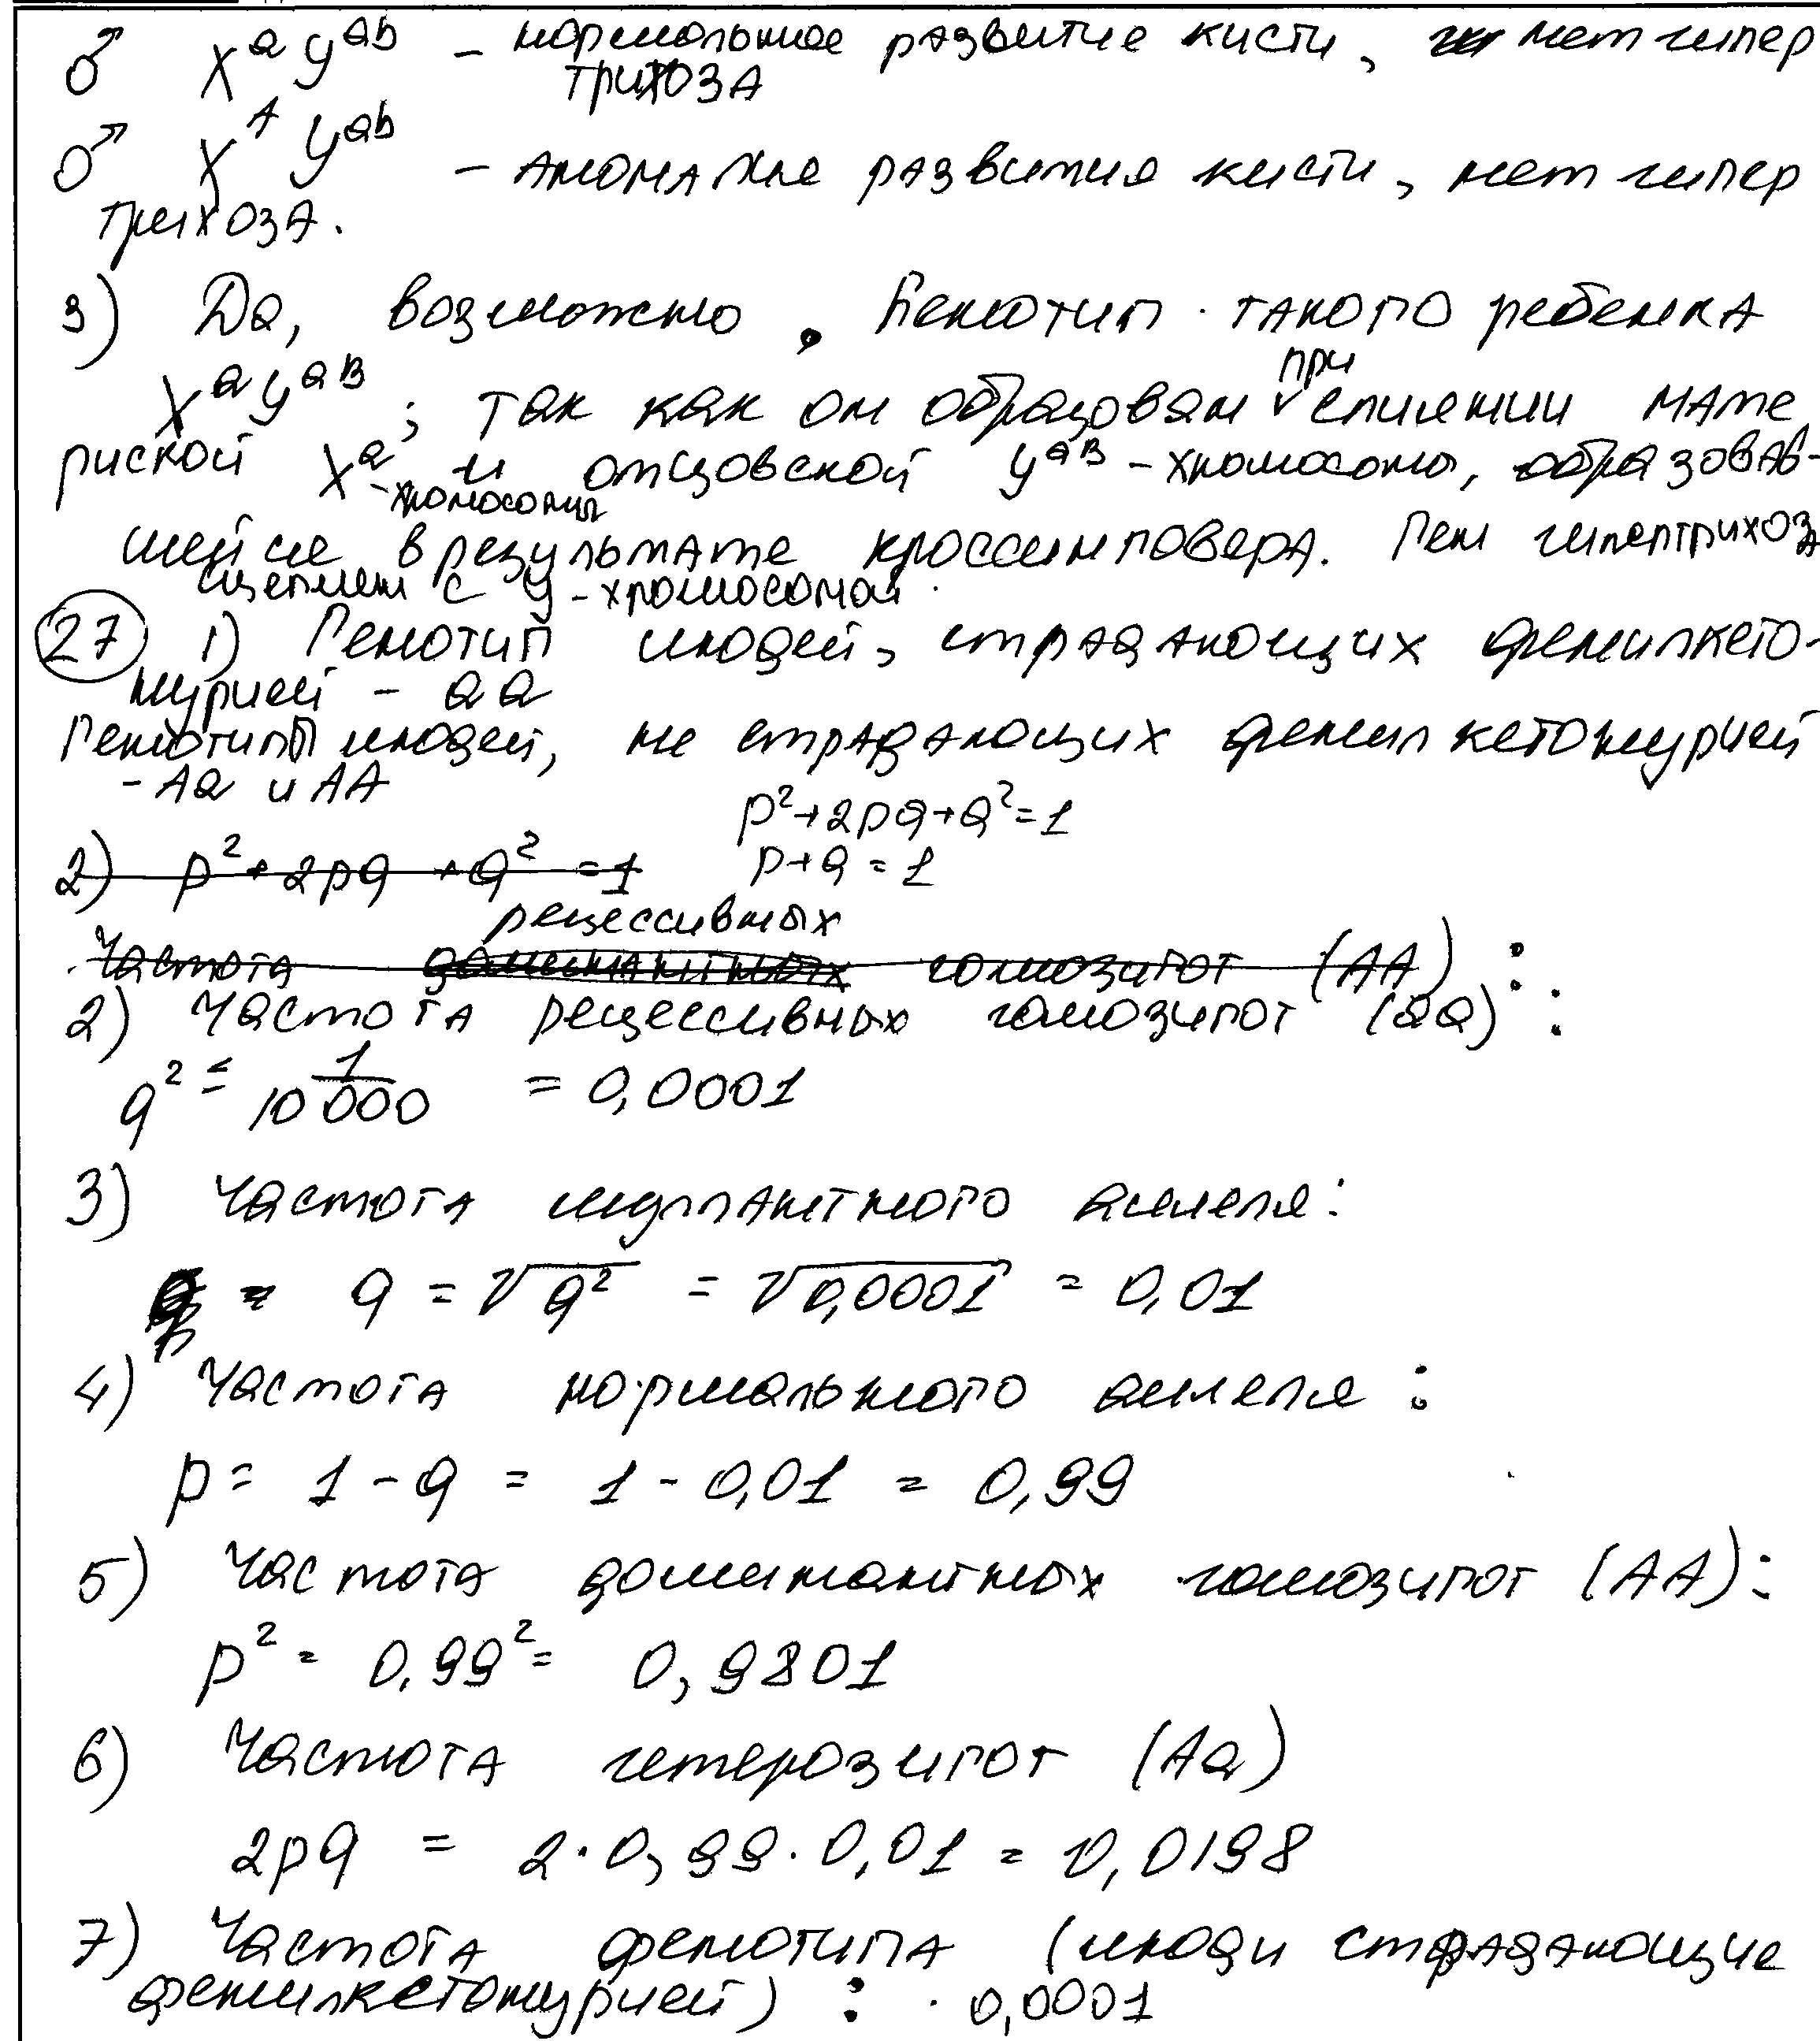 ♂ X^a Y^ab – нормальное развитие кисти, нет гипер
трихоза
♂ X^A Y^ab – аномалие развития кисти, нет гипер
трихоза.
3) Да, возможно. Генотип такого ребенка
X^a Y^aB; так как он образован при слиянии мате
риской X^a-хромосомы и отцовской Y^aB-хромосомы, образовав-
шейся в результате кроссинговера. Ген гипертрихоза
сцеплен с Y-хромосомой.
27 1) Генотип людей, страдающих фенилкето-
нурией – aa
Генотип людей, не страдающих фенилкетонурией
– Aa и AA
p²+2pq+q²=1
2) p²+2pq+q²=1
p+q=1
рецессивных
Частота доминантных гомозигот (AA):
2) Частота рецессивных гомозигот (aa):
q² = 1/10 000 = 0,0001
3) Частота мутантного аллеля:
q = √q² = √0,0001 = 0,01
4) Частота нормального аллеля:
p = 1 - q = 1 - 0,01 = 0,99
5) Частота доминантных гомозигот (AA):
p² = 0,99² = 0,9801
6) Частота гетерозигот (Aa)
2pq = 2·0,99·0,01 = 0,0198
7) Частота фенотипа (люди страдающие
фенилкетонурией): 0,0001